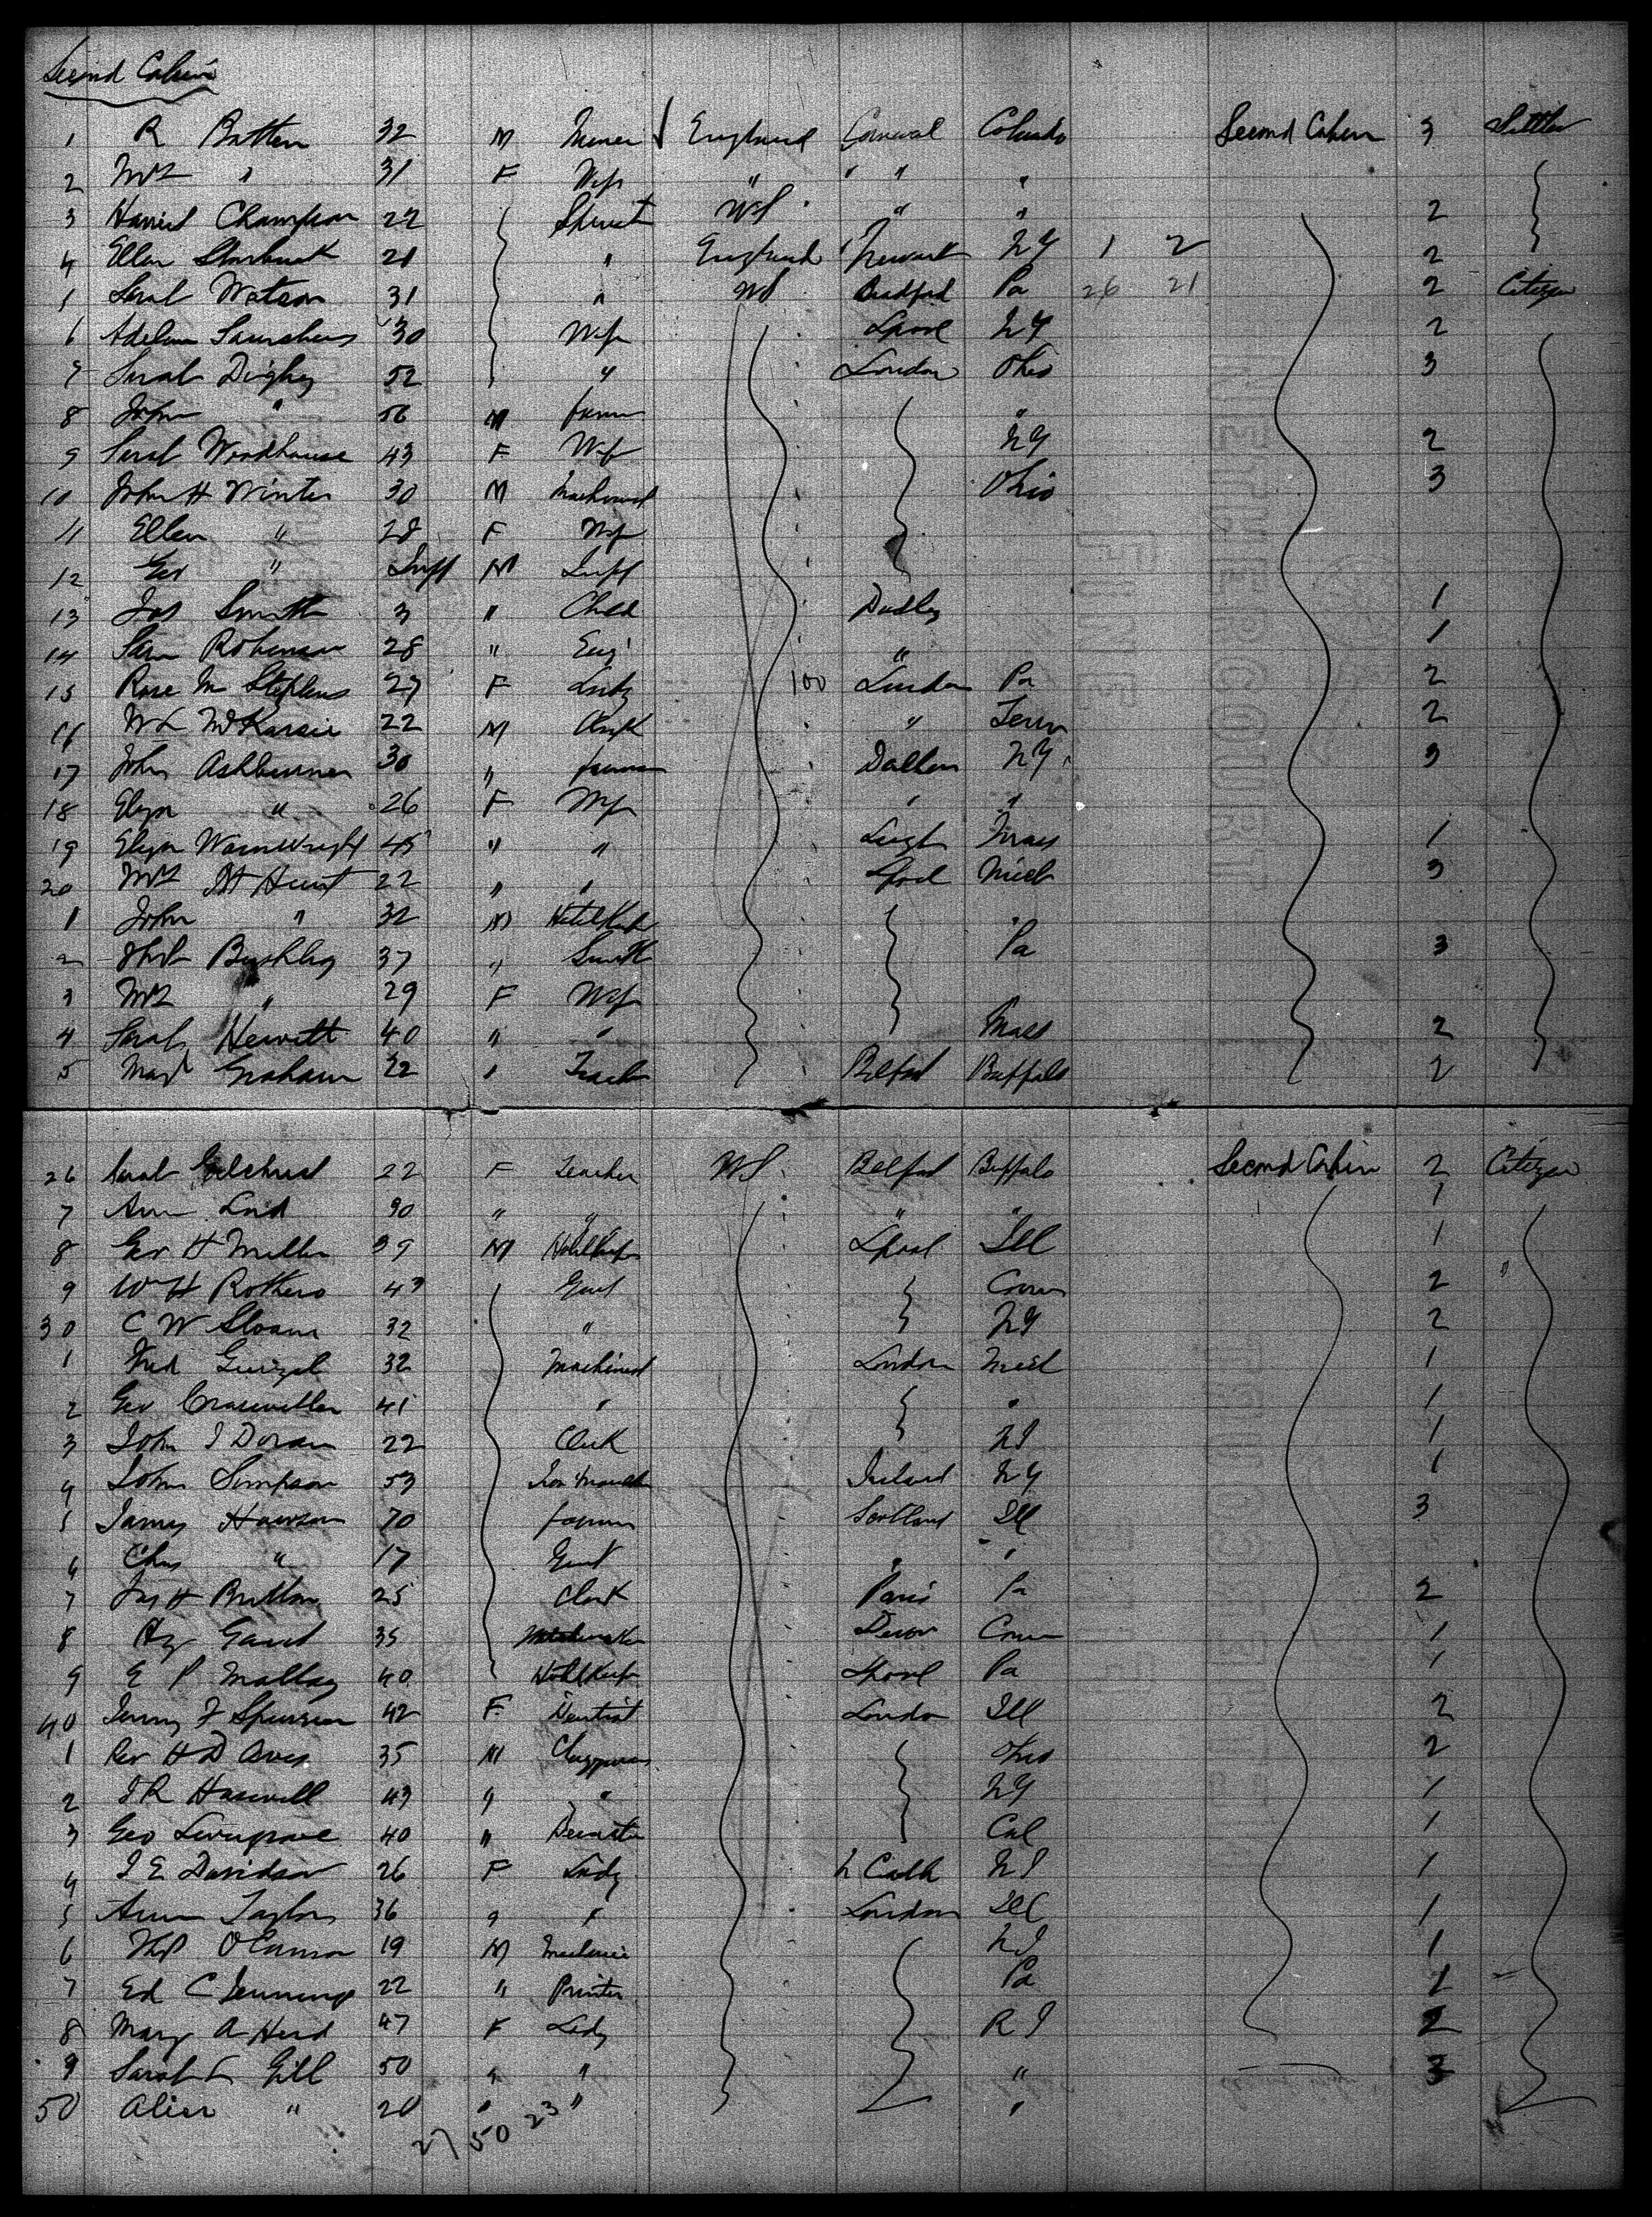 Second Cabin
1 R Batten 32 M Miner England Cornwall Colorado Second Cabin 3 Settler
2 Mrs " 31 F Wife " " " "
3 Harriet Champion 22 US " " 2
4 Ellen Starbuck 21 " England Newark NY 1 2 2
5 Sarah Watson 31 " US Bradford Pa 26 21 2 Citizen
6 Adeline 30 Wife Lpool NY 2
7 Sarah Digby 52 " London Ohio 3
8 John " 56 M farmer "
9 Sarah Woodhouse 43 F Wife NY 2
10 John H Winter 30 M Machinist Ohio 3
11 Ellen " 28 F Wife
12 Geo " Inft M Inft
13 Jos Smith 3 " Child Dudley 1
14 Sam Robinson 28 " Eng " 1
15 Rose M Stephens 27 F Lady 100 London Pa 2
16 22 M Clerk " Tenn 2
17 John Ashburner 30 " farmer Dalton NY 3
18 Eliza " 26 F Wife " "
19 Eliza Wainwright 45 " " Leigh Mass 1
20 Mrs Hunt 22 " " Lpool Mich 3
1 John " 32 M Hotelkeep
2 Thos Bushby 37 " Smith Pa 3
3 Mrs " 29 F Wife
4 Sarah Hewitt 40 " " Mass 2
5 Margt Graham 22 " Teacher Belfast Buffalo 2
26 Sarah Gilchrist 22 F Teacher US Belfast Buffalo Second Cabin 2 Citizen
7 Ann 30 " " " " 1
8 Geo H Miller 39 M Hotelkeeper Lpool Ill 1
9 W H Rothero 43 Gent Conn 2 "
30 C W Sloane 32 " NY 2
1 Fred 32 Machinist London Mich 1
2 Geo Crasweller 41 " " 1
3 John J Doran 22 Clerk NJ 1
4 John Simpson 53 Iron Moulder Ireland NY 1
5 James Hawson 70 farmer Scotland Ill 3
6 Chas " 17 Gent " "
7 Jas H Britton 25 Clerk Paris Pa 2
8 Hy Gaud 35 Devon Conn 1
9 E P Malloy 40 Hotelkeeper Lpool Pa 1
40 Jenny F Spurgeon 42 F Dentist London Ill 2
1 Rev H D Aves 35 M Clergyman Ohio 2
2 J R Haswell 43 " " NY 1
3 Geo 40 " Cal 1
4 J E Davidson 26 F Lady NJ 1
5 Anna Taylor 36 " " London Ill 1
6 Thos OConnor 19 M Mechanic NJ 1
7 Ed C Jennings 22 " Printer Pa 1
8 Mary A Herd 47 F Lady R I 2
9 Sarah L Gill 50 " " " 3
50 Alice " 20 " " "
27 50 23